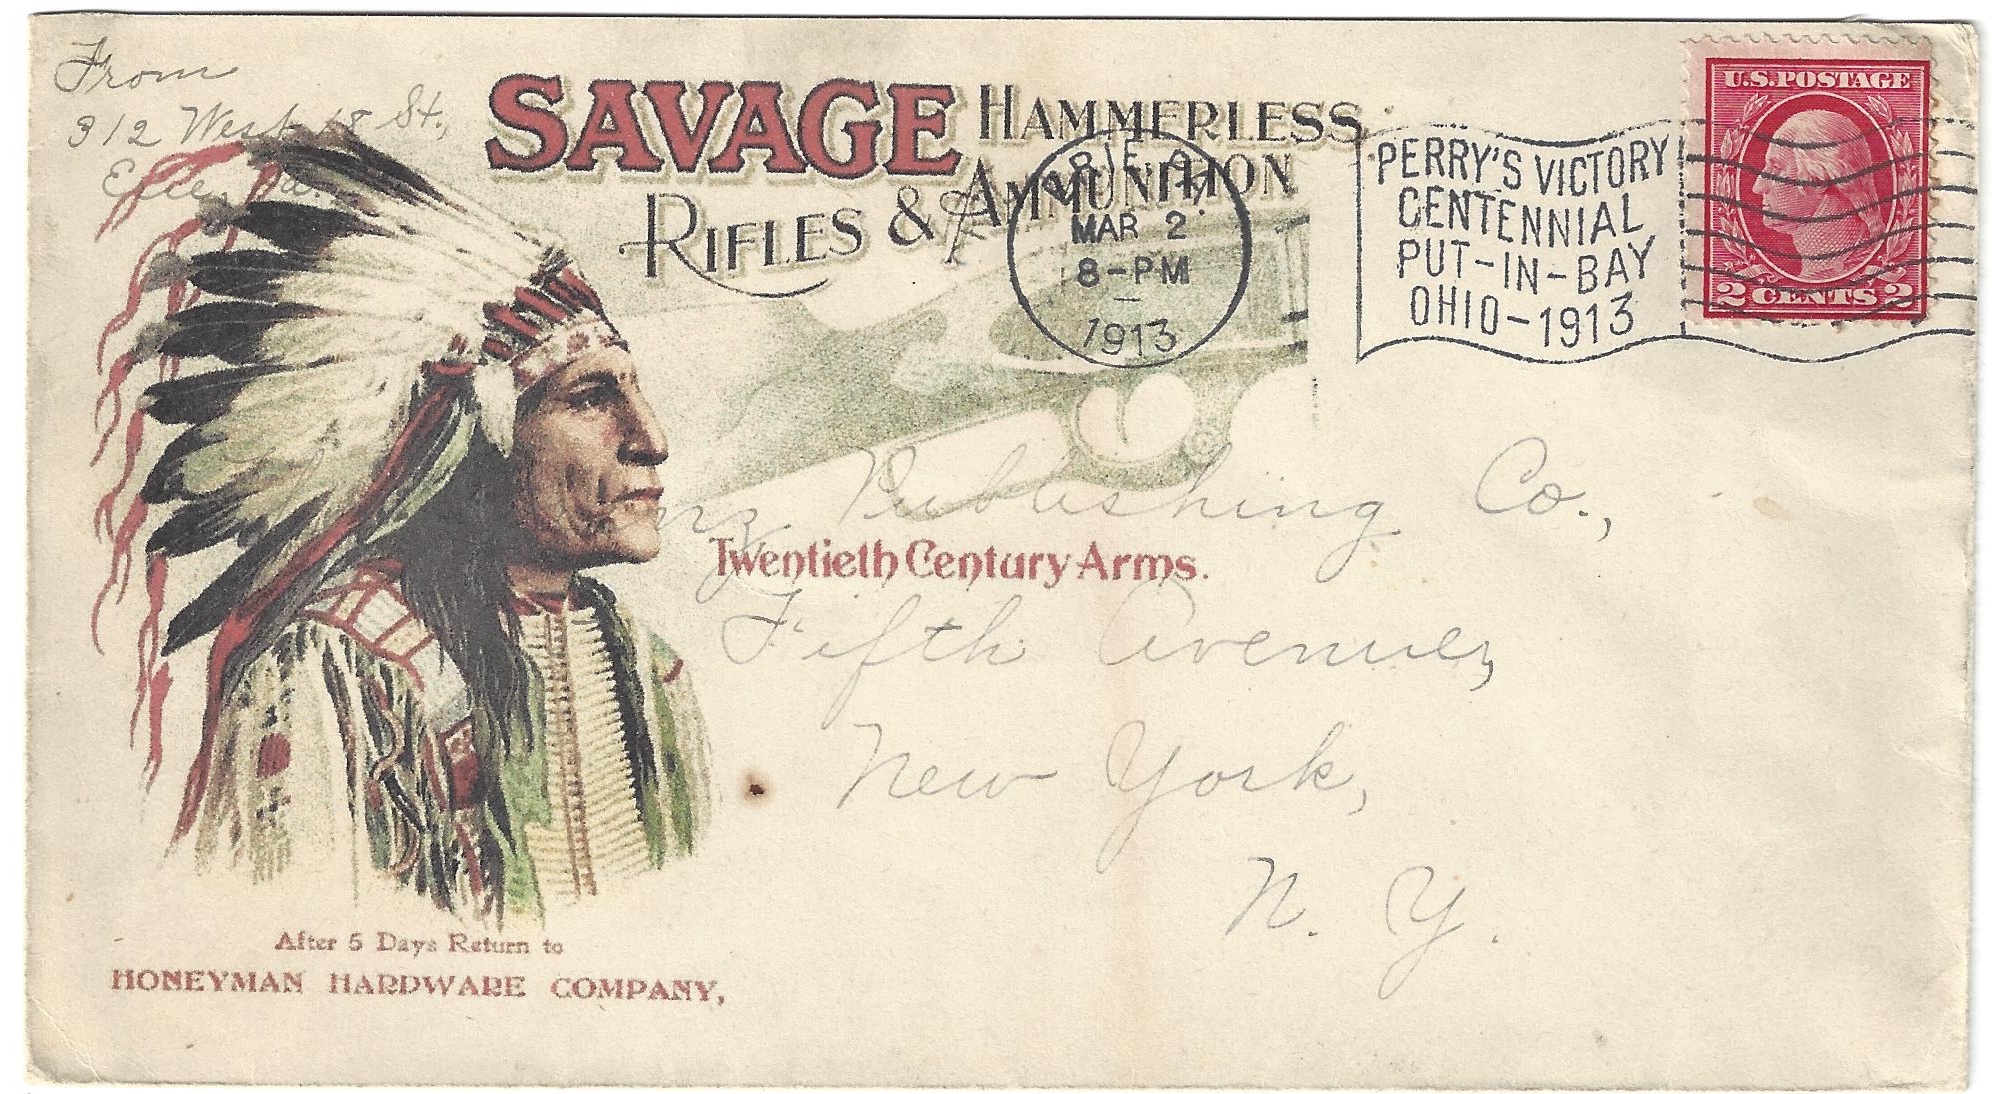 From
312 West 18 St.,
Erie, Pa.
SAVAGE HAMMERLESS
RIFLES & AMMUNITION
ERIE, PA.
MAR 2
8-PM
1913
PERRY'S VICTORY
CENTENNIAL
PUT-IN-BAY
OHIO-1913
U.S. POSTAGE
2 CENTS 2
Publishing Co.,
Twentieth Century Arms.
Fifth Avenue,
New York,
N. Y.
After 5 Days Return to
HONEYMAN HARDWARE COMPANY,